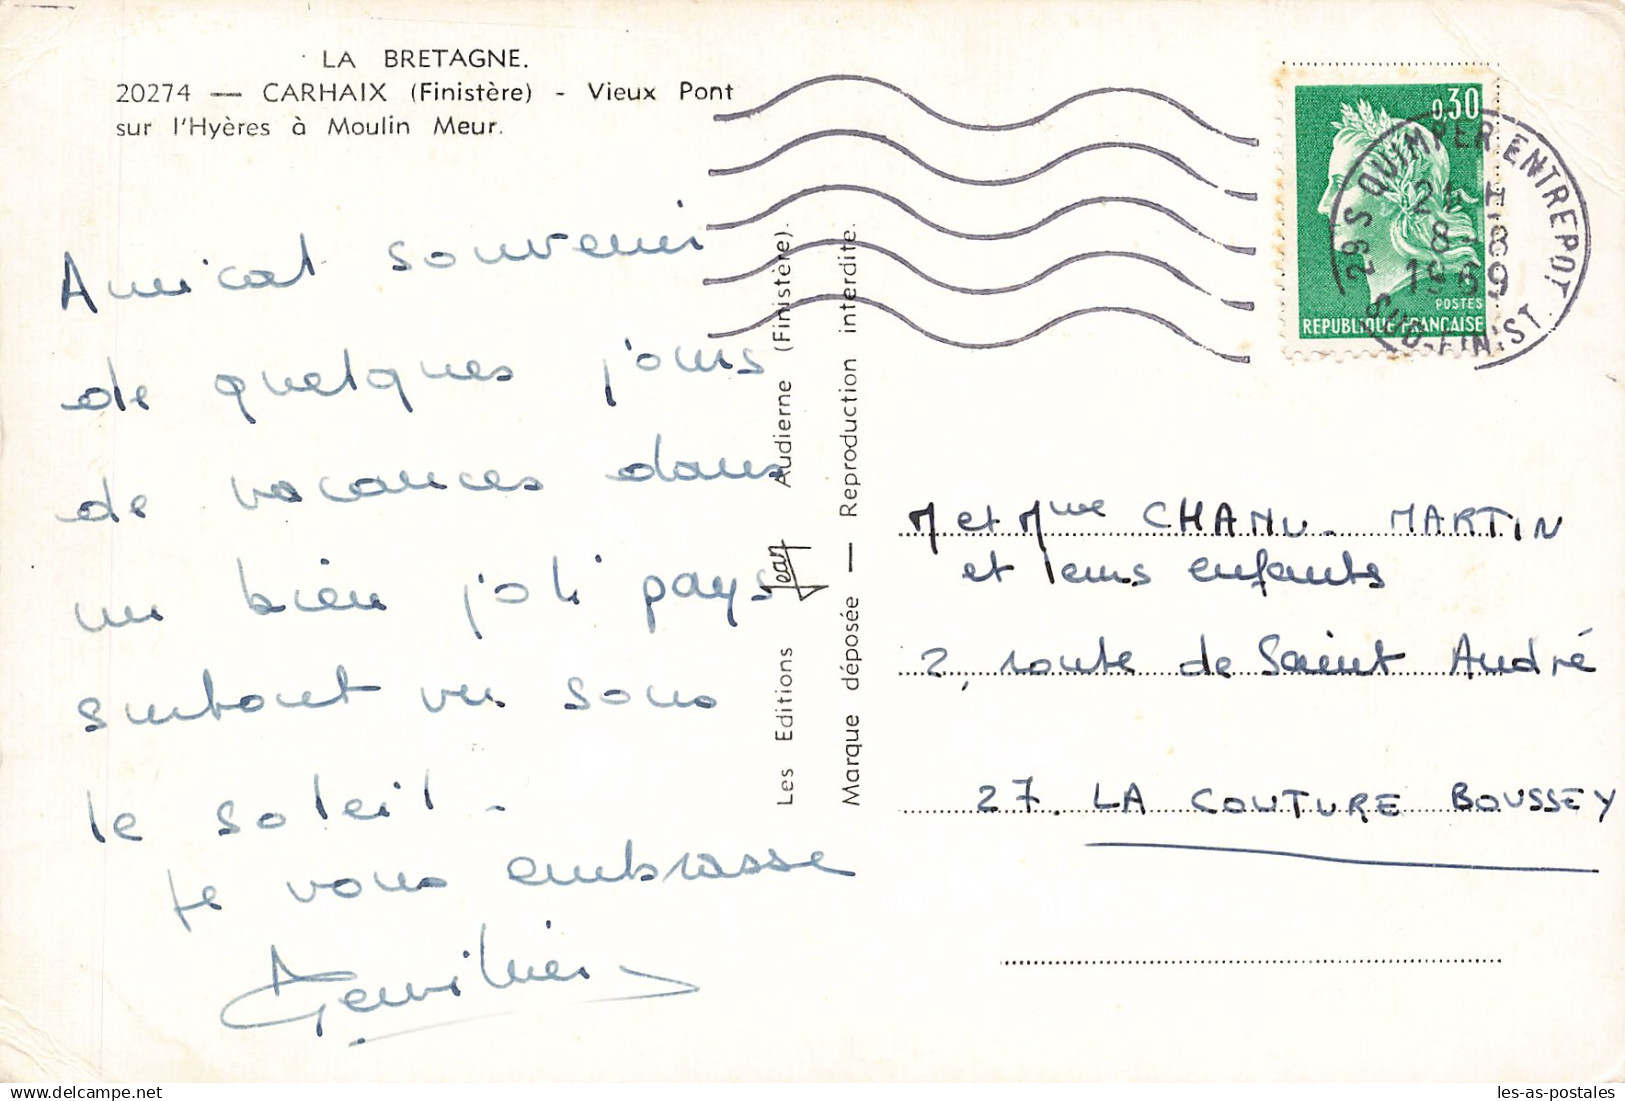 LA BRETAGNE.
20274 — CARHAIX (Finistère) - Vieux Pont
sur l'Hyères à Moulin Meur.
Amical souvenir
de quelques jours
de vacances dans
un bien joli pays
surtout vu sous
le soleil -
Je vous embrasse
Les Editions Jean Audierne (Finistère).
Marque déposée — Reproduction interdite.
0,30
POSTES
REPUBLIQUE FRANCAISE
29S QUIMPER ENTREPOT
21 H
8-8
1969
SUD-FINIST.
M et Mme CHANU-MARTIN
et leurs enfants
2, route de Saint André
27. LA COUTURE BOUSSEY
les-as-postales
DELCAMPE.NET